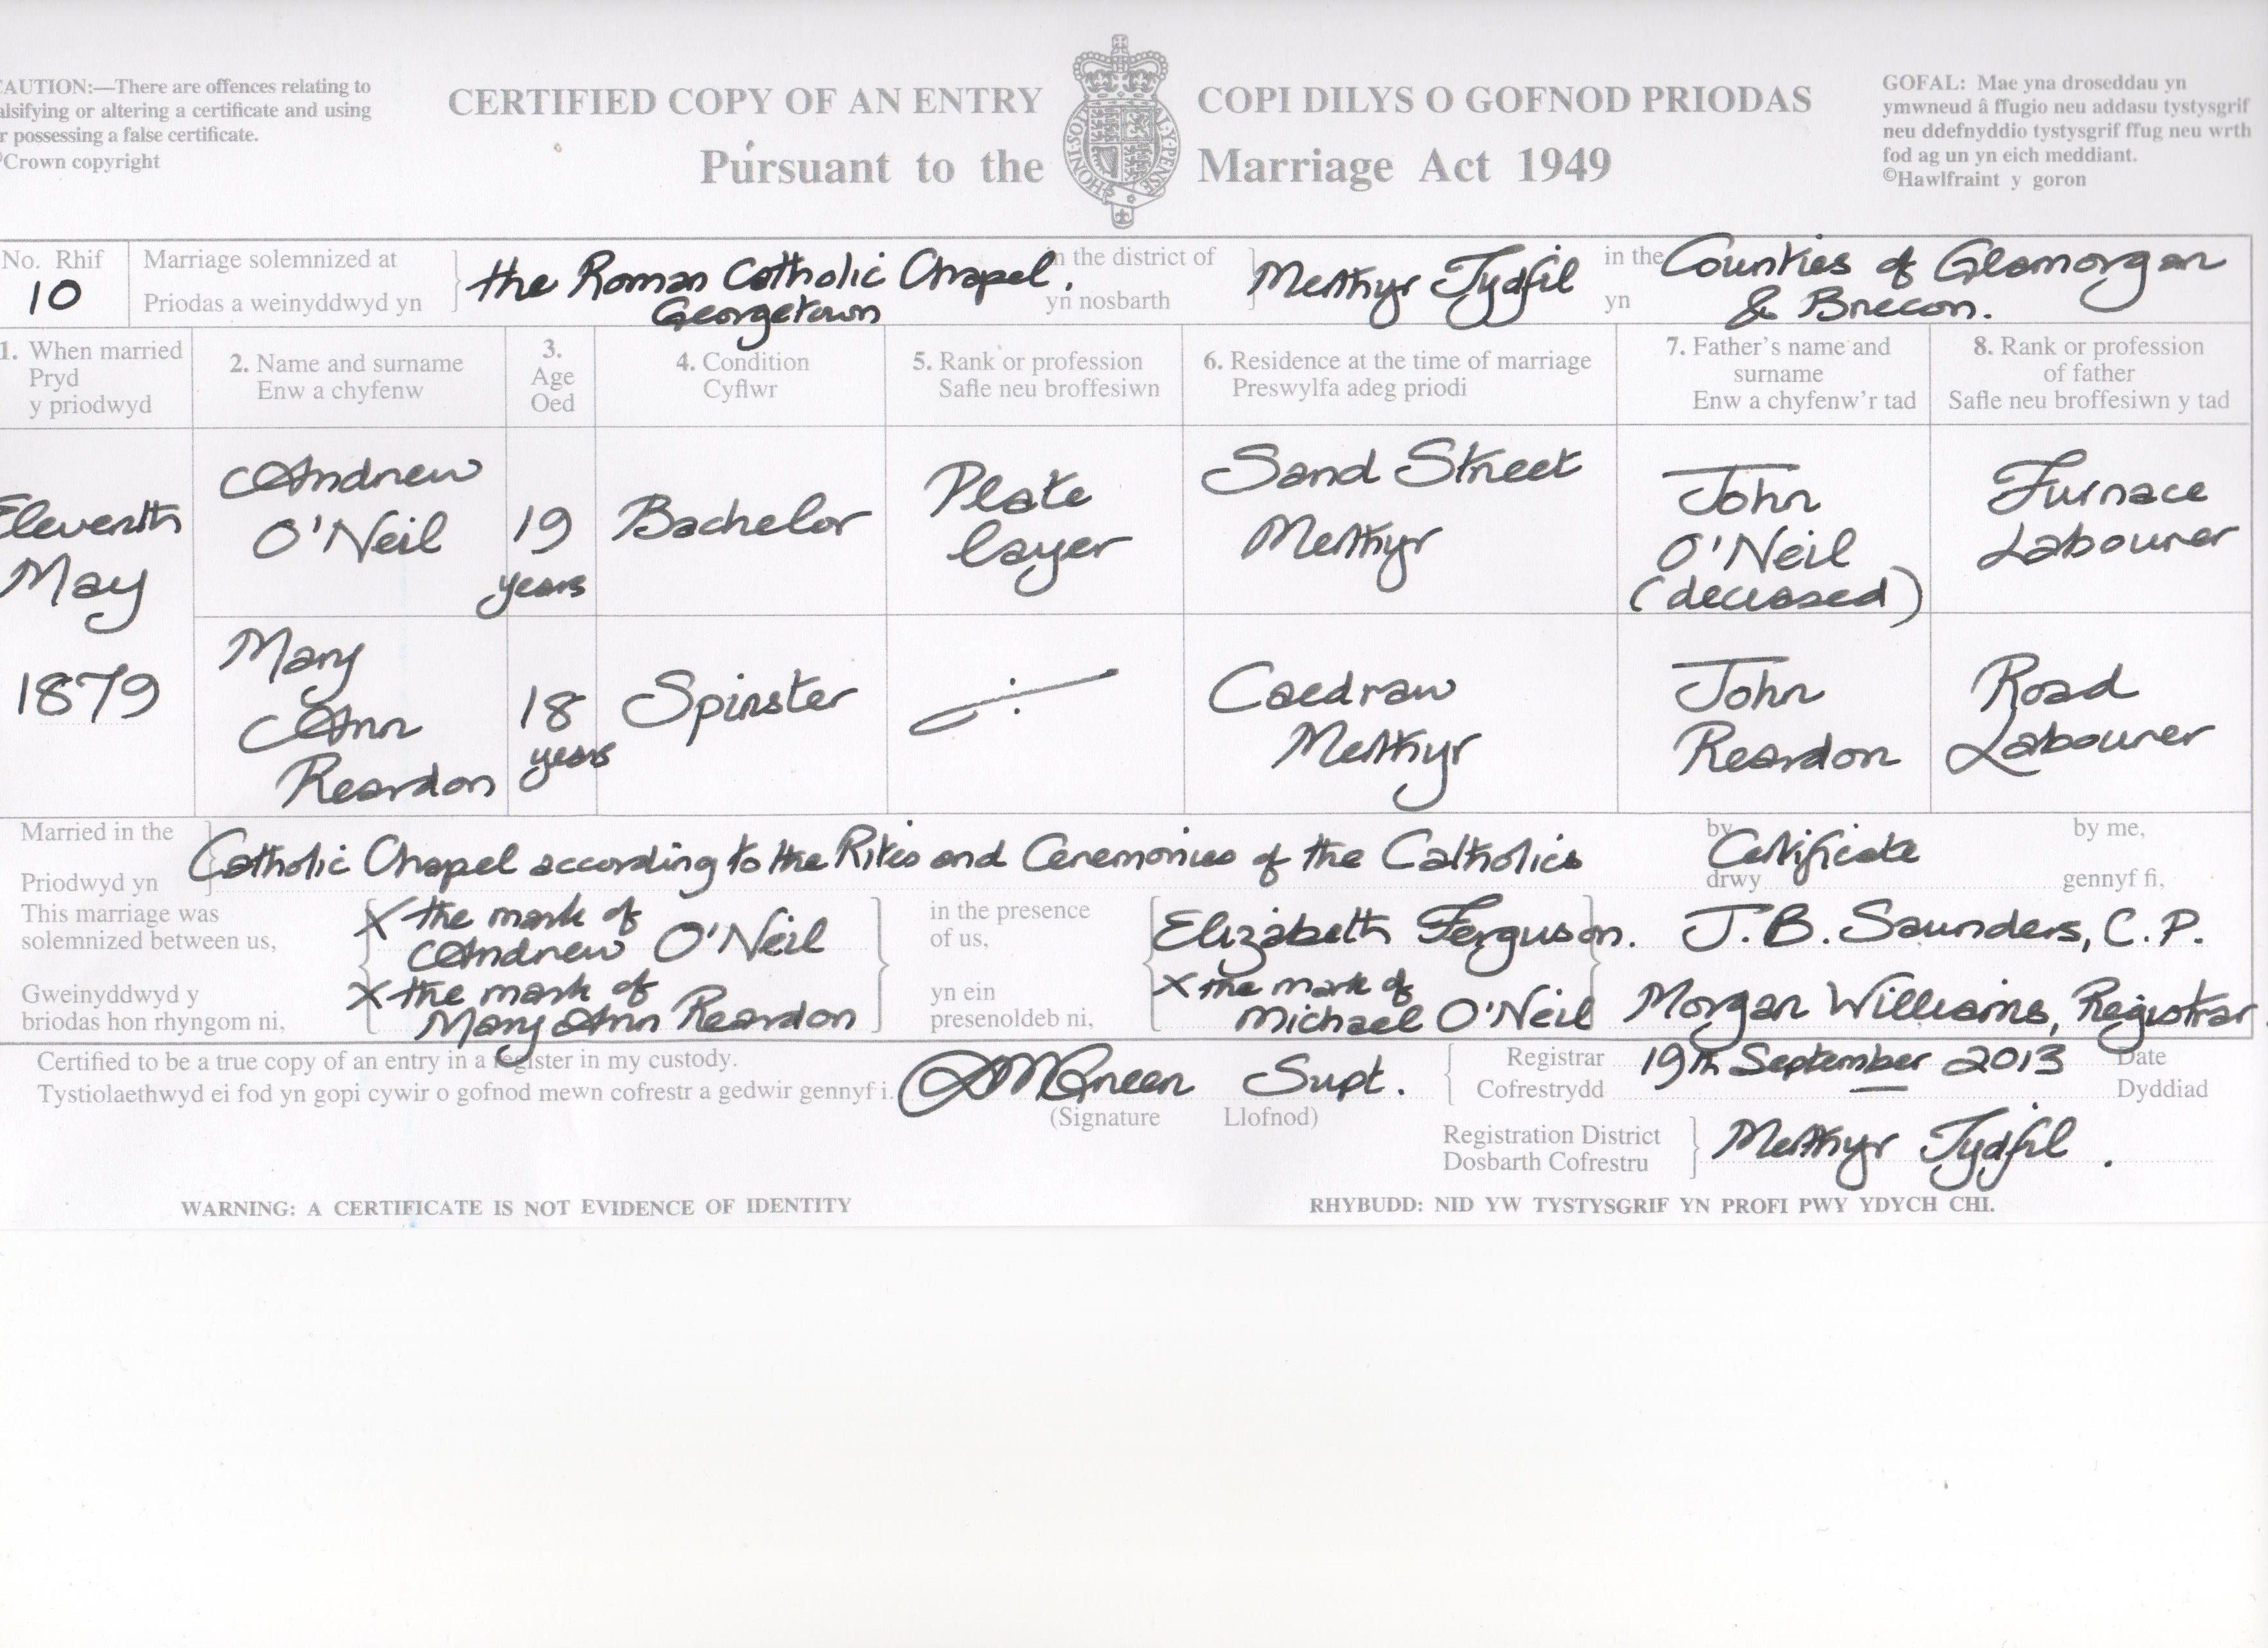 AUTION:—There are offences relating to
alsifying or altering a certificate and using
r possessing a false certificate.
©Crown copyright
CERTIFIED COPY OF AN ENTRY
Pursuant to the
HONI·SOIT AL·Y·PENSE
COPI DILYS O GOFNOD PRIODAS
Marriage Act 1949
GOFAL: Mae yna droseddau yn
ymwneud â ffugio neu addasu tystysgrif
neu ddefnyddio tystysgrif ffug neu wrth
fod ag un yn eich meddiant.
©Hawlfraint y goron
No. Rhif
10
Marriage solemnized at
Priodas a weinyddwyd yn
the Roman Catholic Chapel.
Georgetown
in the district of
yn nosbarth
Merthyr Tydfil
in the
yn
Counties of Glamorgan
& Brecon.
1. When married
Pryd
y priodwyd
2. Name and surname
Enw a chyfenw
3.
Age
Oed
4. Condition
Cyflwr
5. Rank or profession
Safle neu broffesiwn
6. Residence at the time of marriage
Preswylfa adeg priodi
7. Father's name and
surname
Enw a chyfenw'r tad
8. Rank or profession
of father
Safle neu broffesiwn y tad
Eleventh
May
1879
Andrew
O'Neil
19
years
Bachelor
Plate
layer
Sand Street
Merthyr
John
O'Neil
(deceased)
Furnace
Labourer
Mary
Ann
Reardon
18
years
Spinster
Caedraw
Merthyr
John
Reardon
Road
Labourer
Married in the
Priodwyd yn
Catholic Chapel according to the Rites and Ceremonies of the Catholics
by
drwy
Certificate
by me,
gennyf fi,
This marriage was
solemnized between us,
Gweinyddwyd y
briodas hon rhyngom ni,
X the mark of
Andrew O'Neil
X the mark of
Mary Ann Reardon
in the presence
of us,
yn ein
presenoldeb ni,
Elizabeth Ferguson.
X the mark of
Michael O'Neil
J. B. Saunders, C. P.
Morgan Williams, Registrar
Certified to be a true copy of an entry in a register in my custody.
Tystiolaethwyd ei fod yn gopi cywir o gofnod mewn cofrestr a gedwir gennyf i.
DMGreen Supt.
(Signature Llofnod)
Registrar
Cofrestrydd
19th September 2013
Date
Dyddiad
Registration District
Dosbarth Cofrestru
Merthyr Tydfil.
WARNING: A CERTIFICATE IS NOT EVIDENCE OF IDENTITY
RHYBUDD: NID YW TYSTYSGRIF YN PROFI PWY YDYCH CHI.